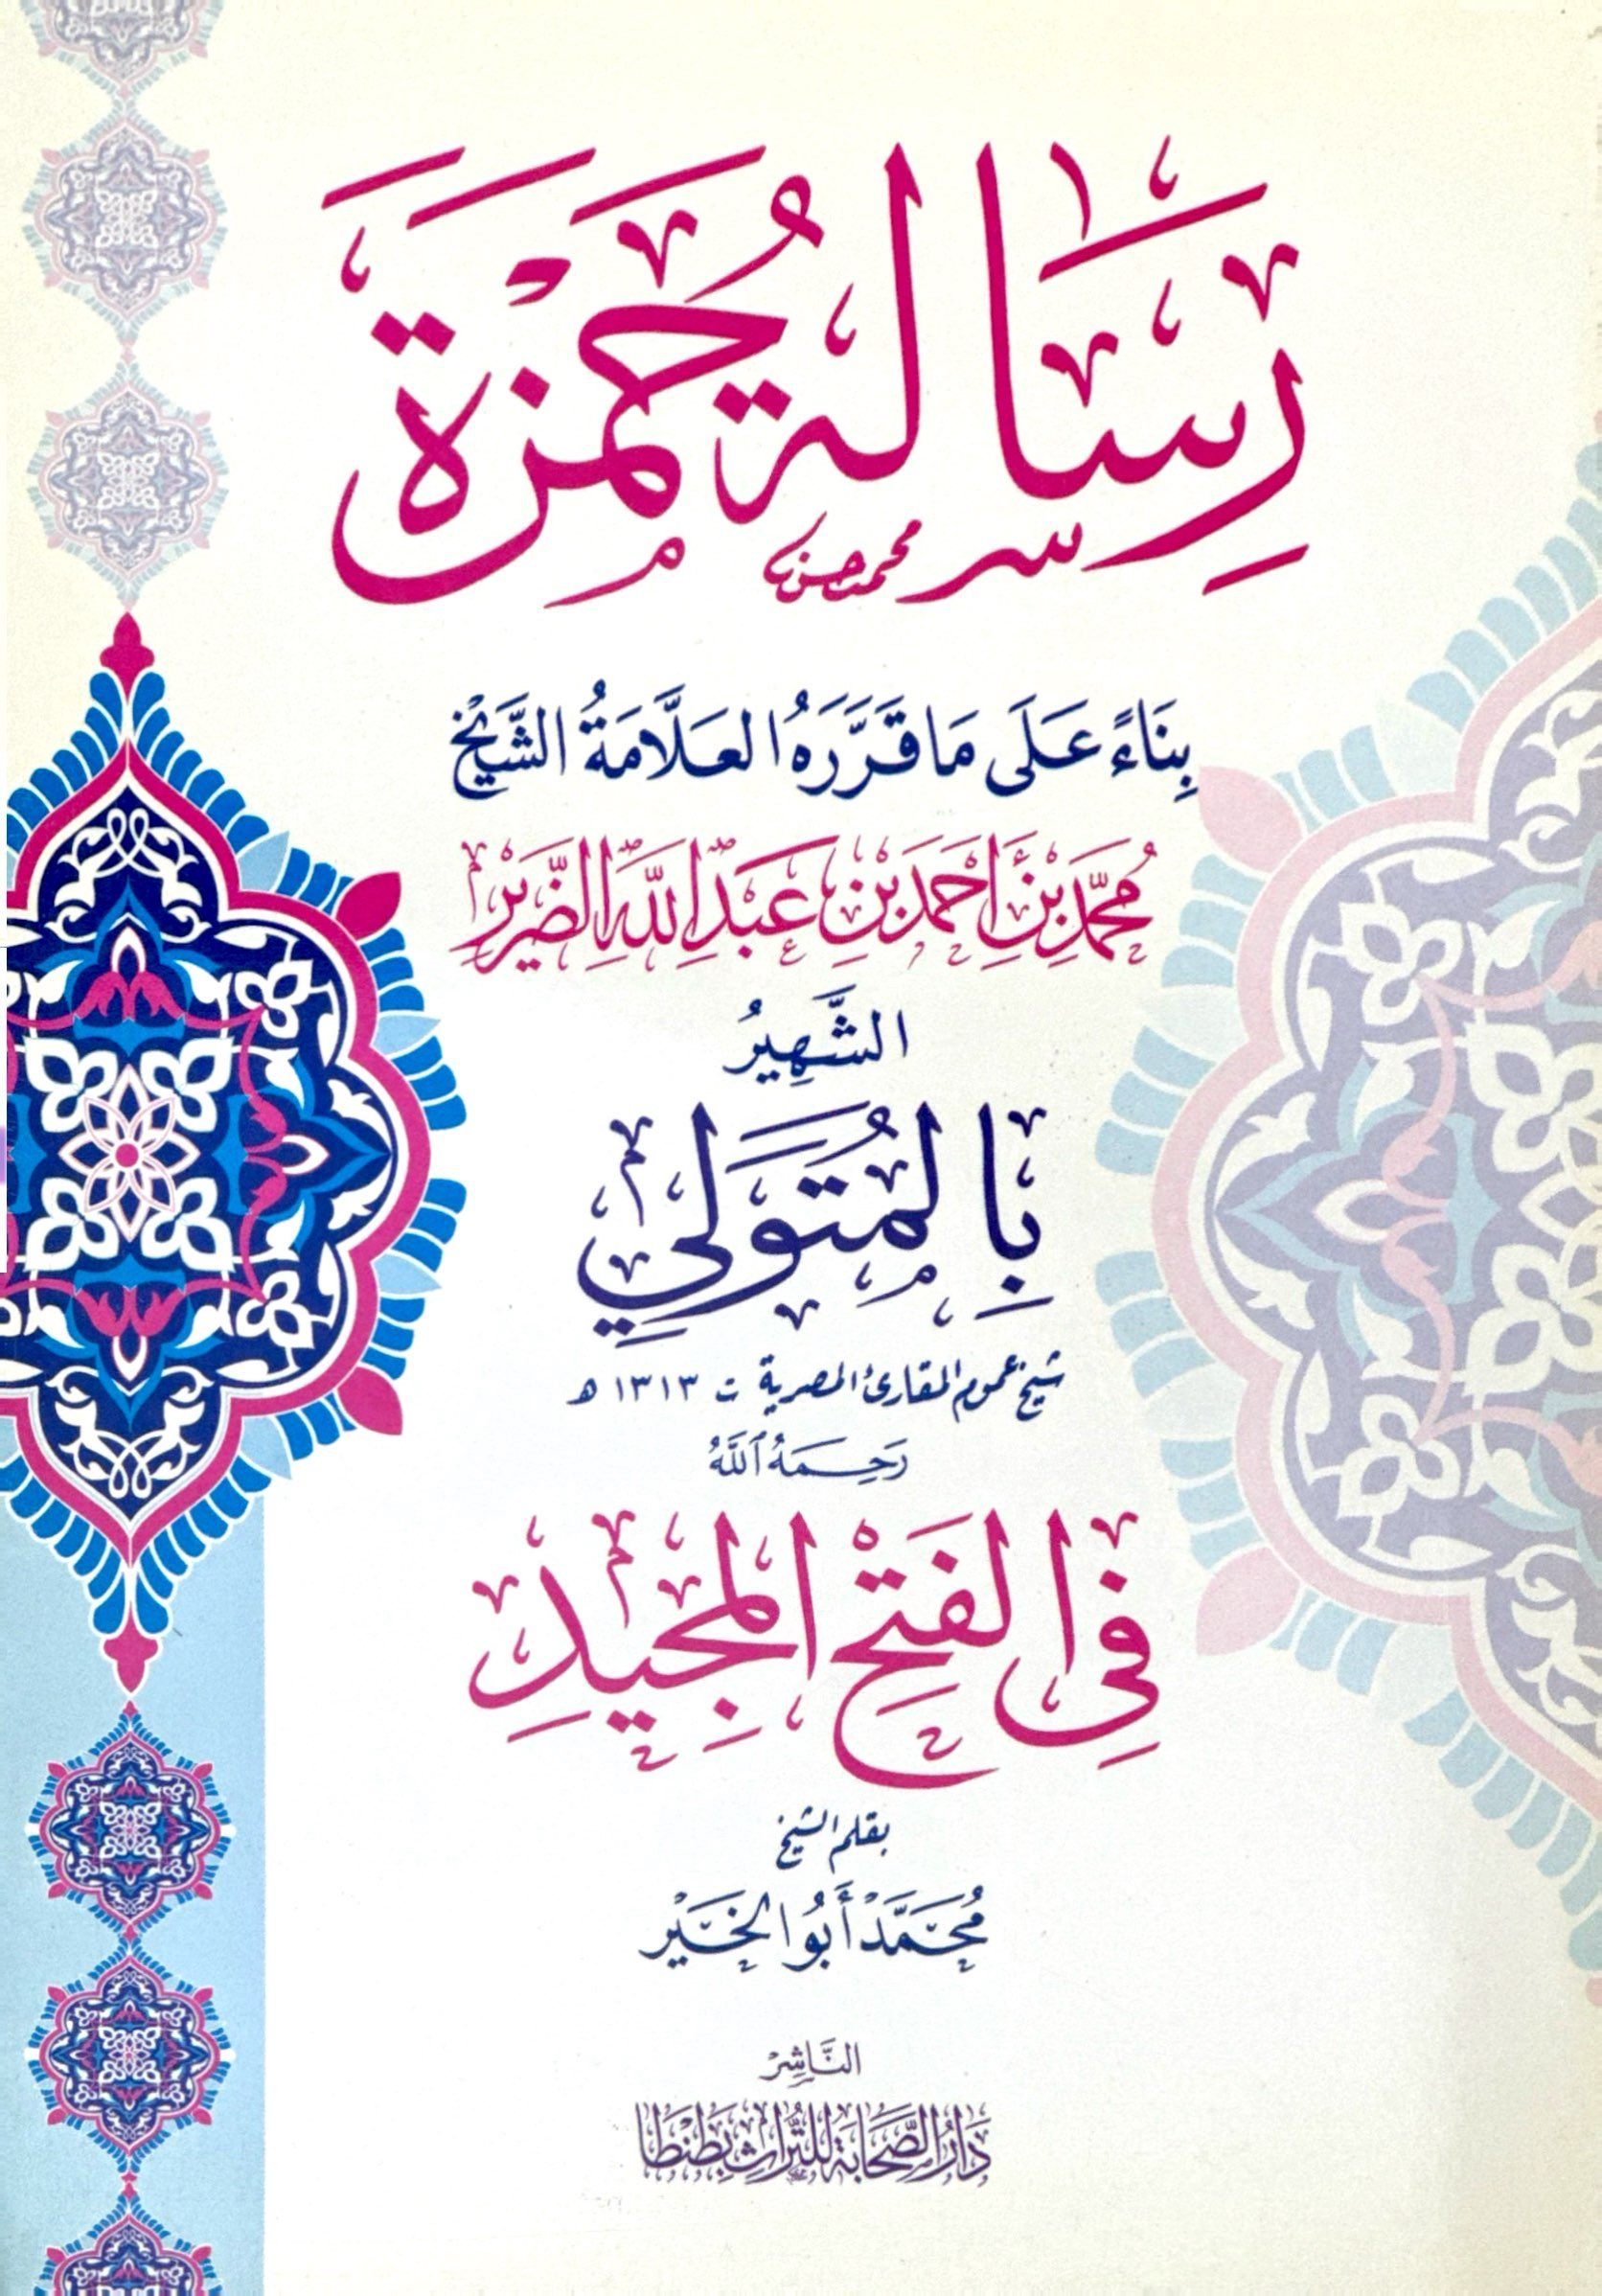 رِسَالَةُ حَمْزَةَ
محمد حسن
بِنَاءً عَلَى مَا قَرَّرَهُ العَلَّامَةُ الشَّيْخ
مُحَمَّد بْنِ أَحْمَد بْنِ عَبْدِ اللَّهِ الضَّرِيْر
الشَّهِيرُ
بِالمُتَوَلِّي
شيخ عموم المقارئ المصرية ت ١٣١٣ هـ
رَحِمَهُ اللَّهُ
فِي الفَتْحِ المَجِيدِ
بقلم الشيخ
مُحَمَّدْ أَبُو الخَيْر
النَّاشِرْ
دَارُ الصَّحَابَةِ لِلتُّرَاثِ بِطَنْطَا